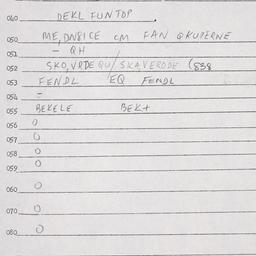 040 DEKL FUNTOP
050 ME, DN8ICE CM FAN GKUPERNE
051 — QH
052 SKO, VRDE QU/ SKAVERDDE (838
053 FENDL EQ FENDL
054 –
055 BEKELE BEK+
056 O
057 O
058 O
059 O
060 O
070 O
080 O